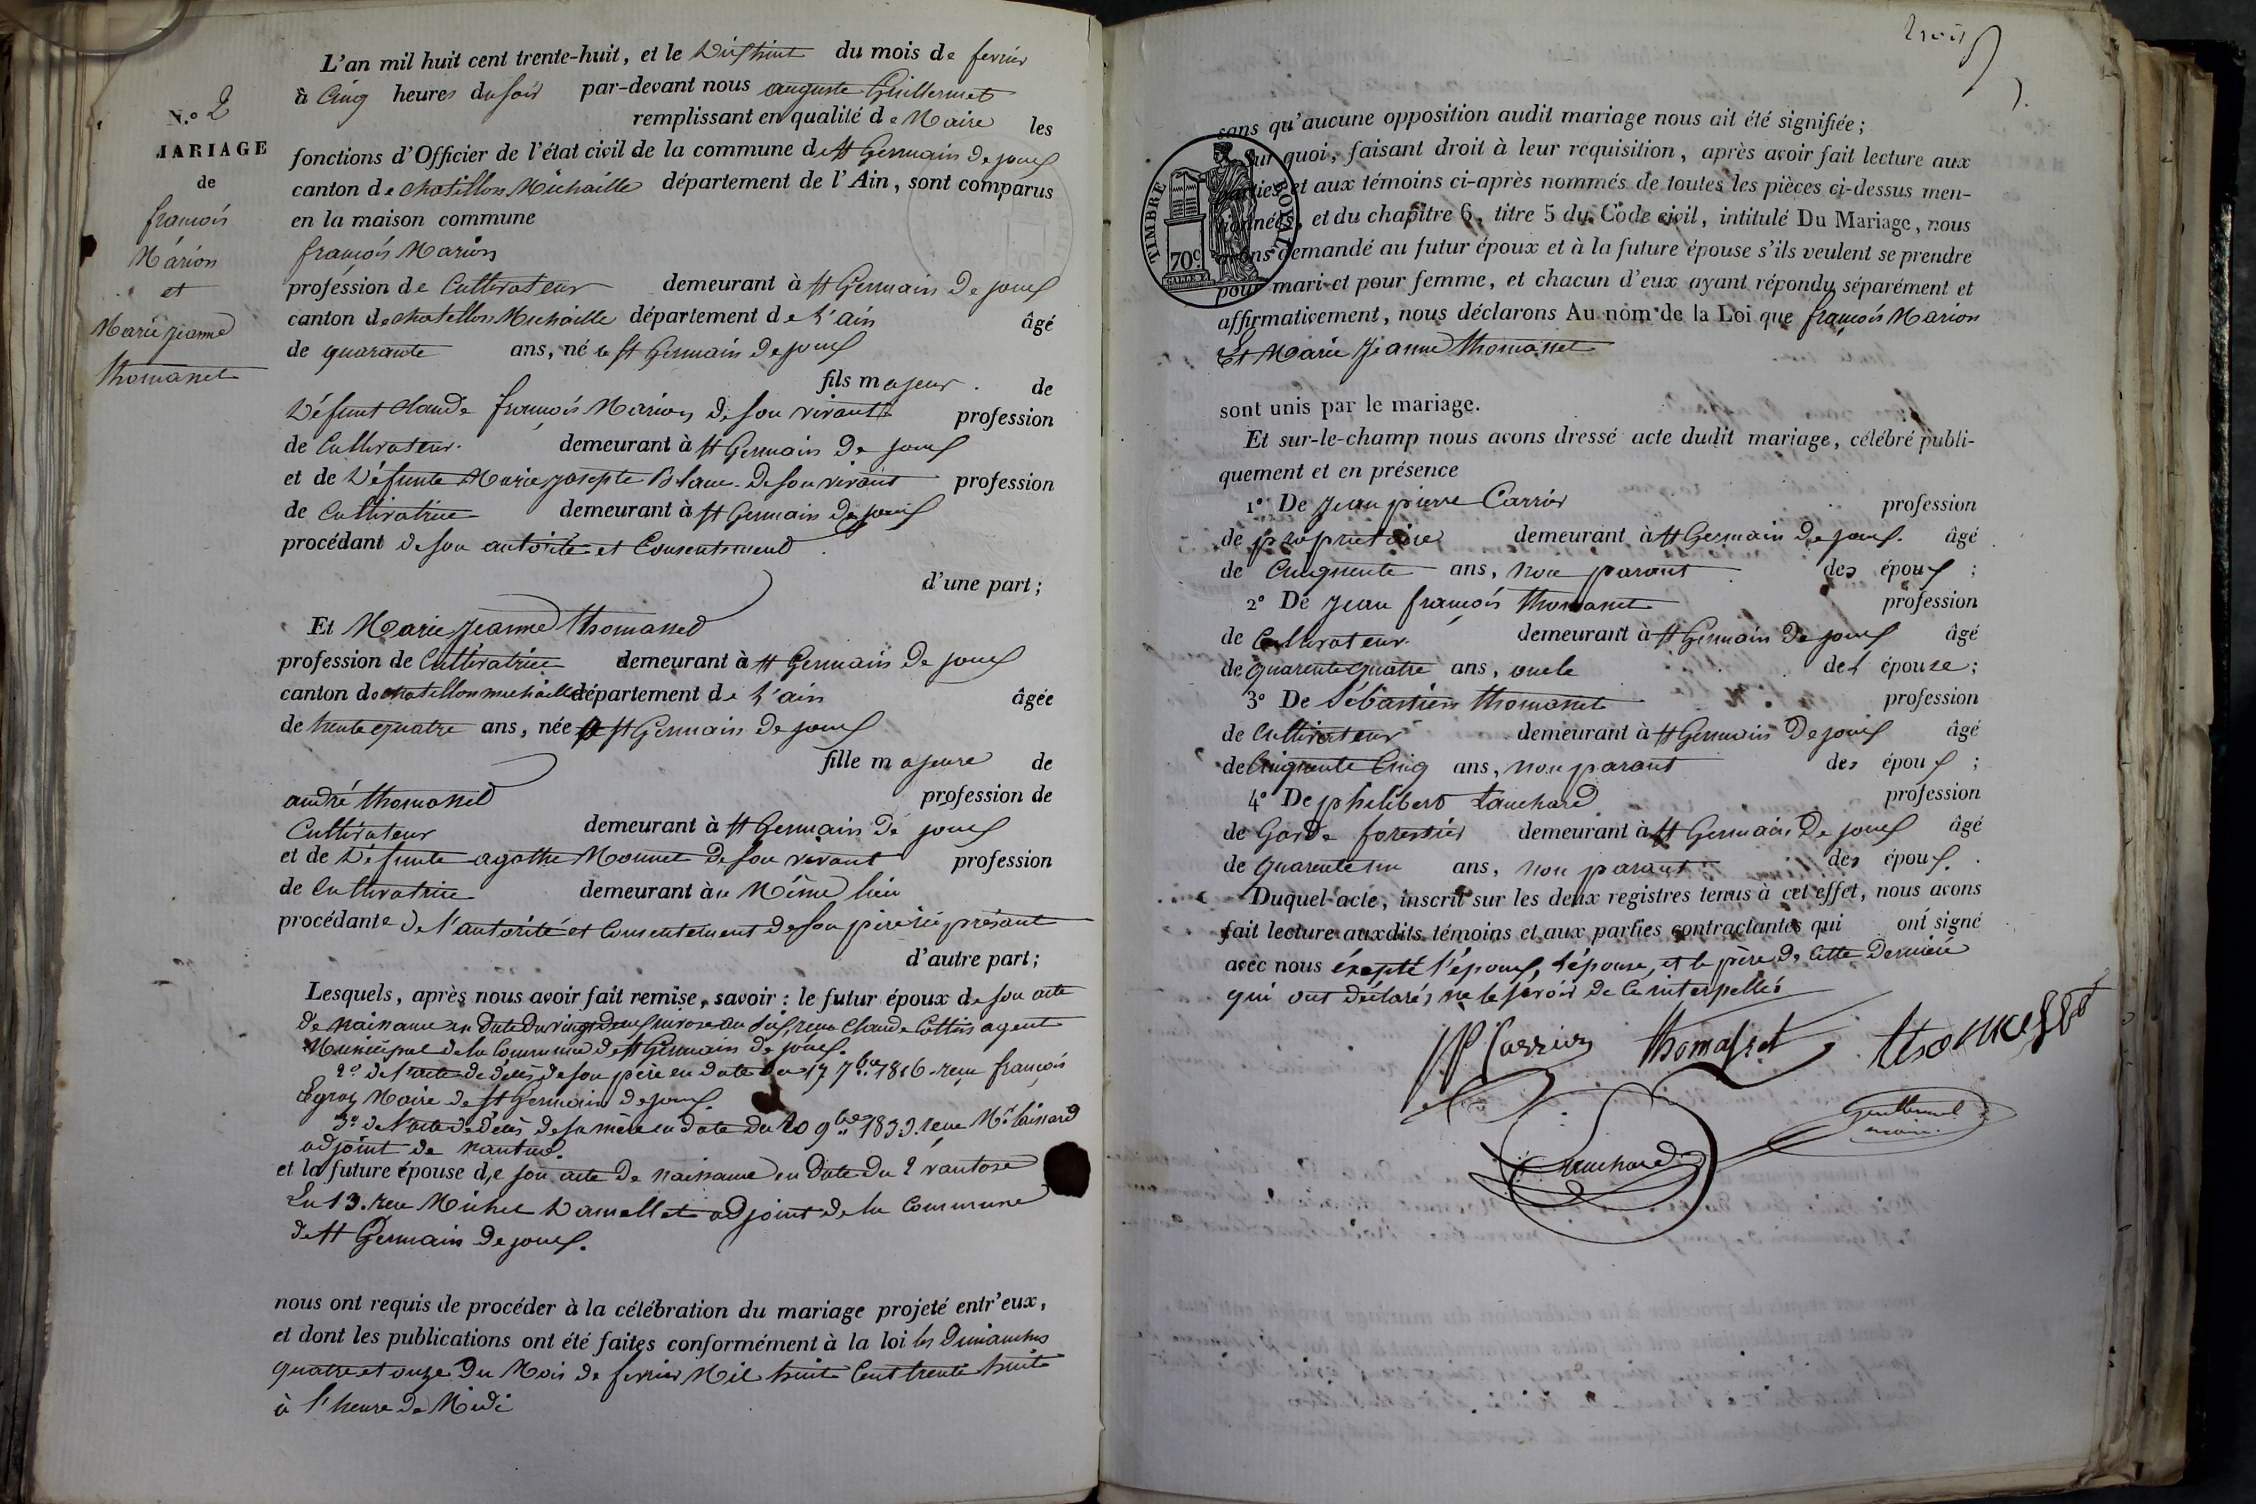 L'an mil huit cent trente-huit, et le Dixhuit du mois de fevrier
à Cinq heures du soir par-devant nous auguste Guillermet
remplissant en qualité de Maire les
N.º 2
MARIAGE
de
françois
Marion
et
Marie jeanne
thomasset
fonctions d'Officier de l'état civil de la commune de St Germain de joux
canton de chatillon Michaille département de l'Ain, sont comparus
en la maison commune
françois Marion
profession de Cultivateur demeurant à St Germain de joux
canton de chatillon Michaille département de L'ain âgé
de quarante ans, né à St Germain de joux
fils majeur de
Défunt Claude françois Marion de son vivant profession
de Cultivateur demeurant à St Germain de joux
et de Défunte Marie josepte Blanc de son vivant profession
de Cultivatrice demeurant à St Germain de joux
procédant de son autorité et Consentement
d'une part;
Et Marie jeanne thomasset
profession de Cultivatrice demeurant à St Germain de joux
canton de chatillon michaille département de L'ain âgée
de trente quatre ans, née à St Germain de joux
fille majeure de
andré thomasset profession de
Cultivateur demeurant à St Germain de joux
et de Défunte agathe Monnet de son vivant profession
de Cultivatrice demeurant au Même lieu
procédante de l'autorité et Consentement de son père ici présant
d'autre part;
Lesquels, après nous avoir fait remise, savoir: le futur époux de son acte
de naissance en date du vingt deux nivose an six, reçu Claude Cottin agent
Municipal de la Commune de St Germain de joux.
2º de l'acte de décès de son père en date du 17 7bre 1816 reçu françois
Egraz Maire de St Germain de joux
3º de l'acte de décès de sa mère en date du 20 9bre 1833. reçu Mr
adjoint de nantua.
et la future épouse de son acte de naissance en date du 2 vantose
an 13. reçu Michel adjoint de la Commune
de St Germain de joux.
nous ont requis de procéder à la célébration du mariage projeté entr'eux,
et dont les publications ont été faites conformément à la loi les Dimanches
quatre et onze du Mois de fevrier Mil huit Cent trente huit
à l'heure de Midi
trois
sans qu'aucune opposition audit mariage nous ait été signifiée;
Sur quoi, faisant droit à leur requisition, après avoir fait lecture aux
parties et aux témoins ci-après nommés de toutes les pièces ci-dessus men-
tionnées, et du chapitre 6, titre 5 du Code civil, intitulé Du Mariage, nous
avons demandé au futur époux et à la future épouse s'ils veulent se prendre
pour mari et pour femme, et chacun d'eux ayant répondu séparément et
affirmativement, nous déclarons Au nom de la Loi que françois Marion
Et Marie jeanne thomasset
TIMBRE ROYAL
70c.
sont unis par le mariage.
Et sur-le-champ nous avons dressé acte dudit mariage, célébré publi-
quement et en présence
1º De jean pierre Carrier profession
de propriétaire demeurant à St Germain de joux âgé
de Cinquente ans, non parant des époux;
2º De jean françois thomasset profession
de Cultivateur demeurant à St Germain de joux âgé
de quarente quatre ans, oncle de l'épouse;
3º De Sébastien thomasset profession
de Cultivateur demeurant à St Germain de joux âgé
de Cinquente Cinq ans, non parant des époux;
4º De philibert Tauchard profession
de Garde forestier demeurant à St Germain de joux âgé
de quarente un ans, non parant des époux.
Duquel acte, inscrit sur les deux registres tenus à cet effet, nous avons
fait lecture auxdits témoins et aux parties contractantes qui ont signé
avec nous éxepté l'époux, l'épouse, et le père de cette Dernière
qui ont déclarés ne le savoir de ce interpellés
JP Carrier thomasset thomasset
Guillermet
maire.
Tauchard